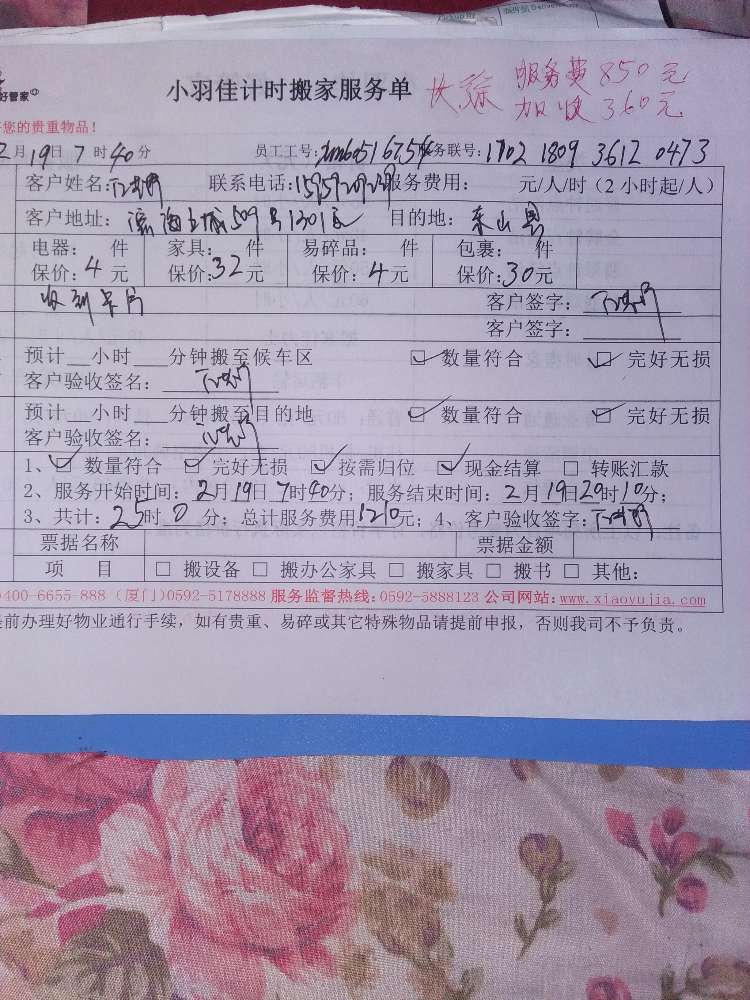 好管家
小羽佳计时搬家服务单
长途 服务费850元
加收360元
您的贵重物品！
2月19日7时40分 员工工号： 务联号：1702 1809 3612 0473
客户姓名： 联系电话： 服务费用： 元/人/时（2小时起/人）
客户地址： 509号1301室 目的地：东山县
电器： 件 家具： 件 易碎品： 件 包裹： 件
保价：4元 保价：32元 保价：4元 保价：30元
收到单片 客户签字：
客户签字：
预计 小时 分钟搬至候车区 ☑ 数量符合 ☑ 完好无损
客户验收签名：
预计 小时 分钟搬至目的地 ☑ 数量符合 ☑ 完好无损
客户验收签名：
1、☑ 数量符合 ☑ 完好无损 ☑ 按需归位 ☑ 现金结算 □ 转账汇款
2、服务开始时间：2月19日7时40分；服务结束时间：2月19日20时10分；
3、共计：25时0分；总计服务费用1210元；4、客户验收签字：
票据名称 票据金额
项 目 □ 搬设备 □ 搬办公家具 □ 搬家具 □ 搬书 □ 其他：
400-6655-888（厦门）0592-5178888 服务监督热线：0592-5888123 公司网站：www.xiaoyujia.com
前办理好物业通行手续，如有贵重、易碎或其它特殊物品请提前申报，否则我司不予负责。